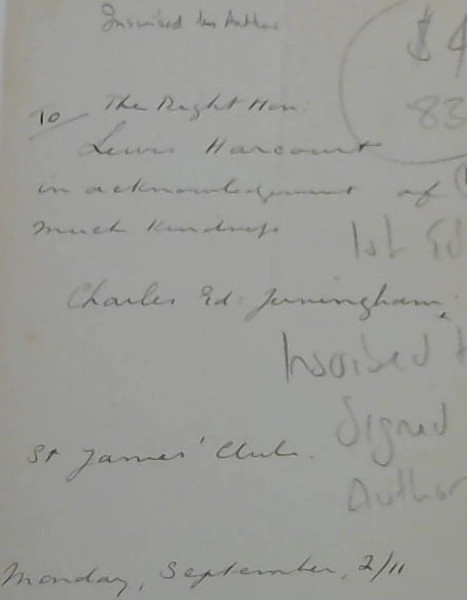 Inscribed by Author
$4
83
To The Right Hon.
Lewis Harcourt
in acknowledgement of
much kindness
1st Ed
Charles Ed. Jerningham,
Inscribed
Signed
Author
St James' Club.
Monday, September, 2/11